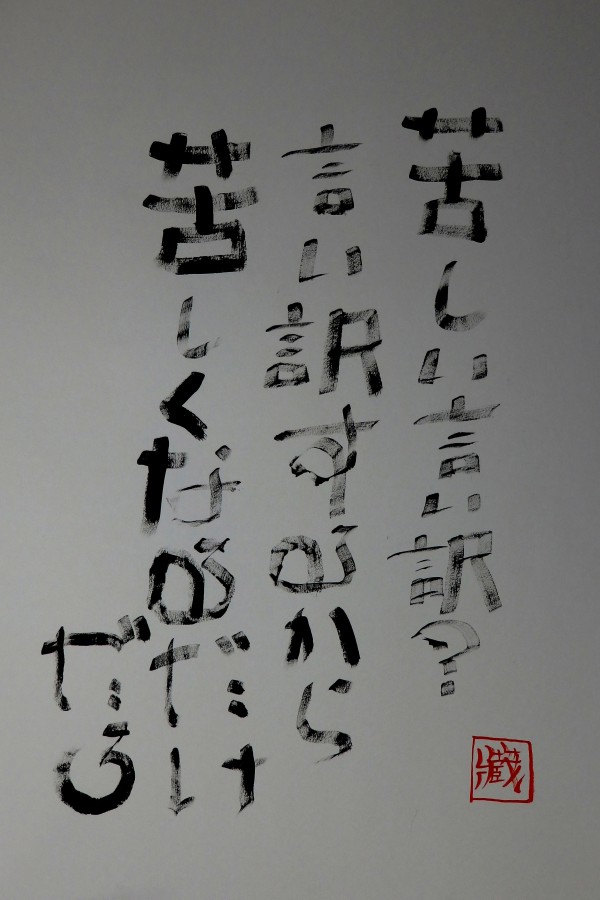 苦しい言い訳？
言い訳するから
苦しくなるだけ
だろ
藏